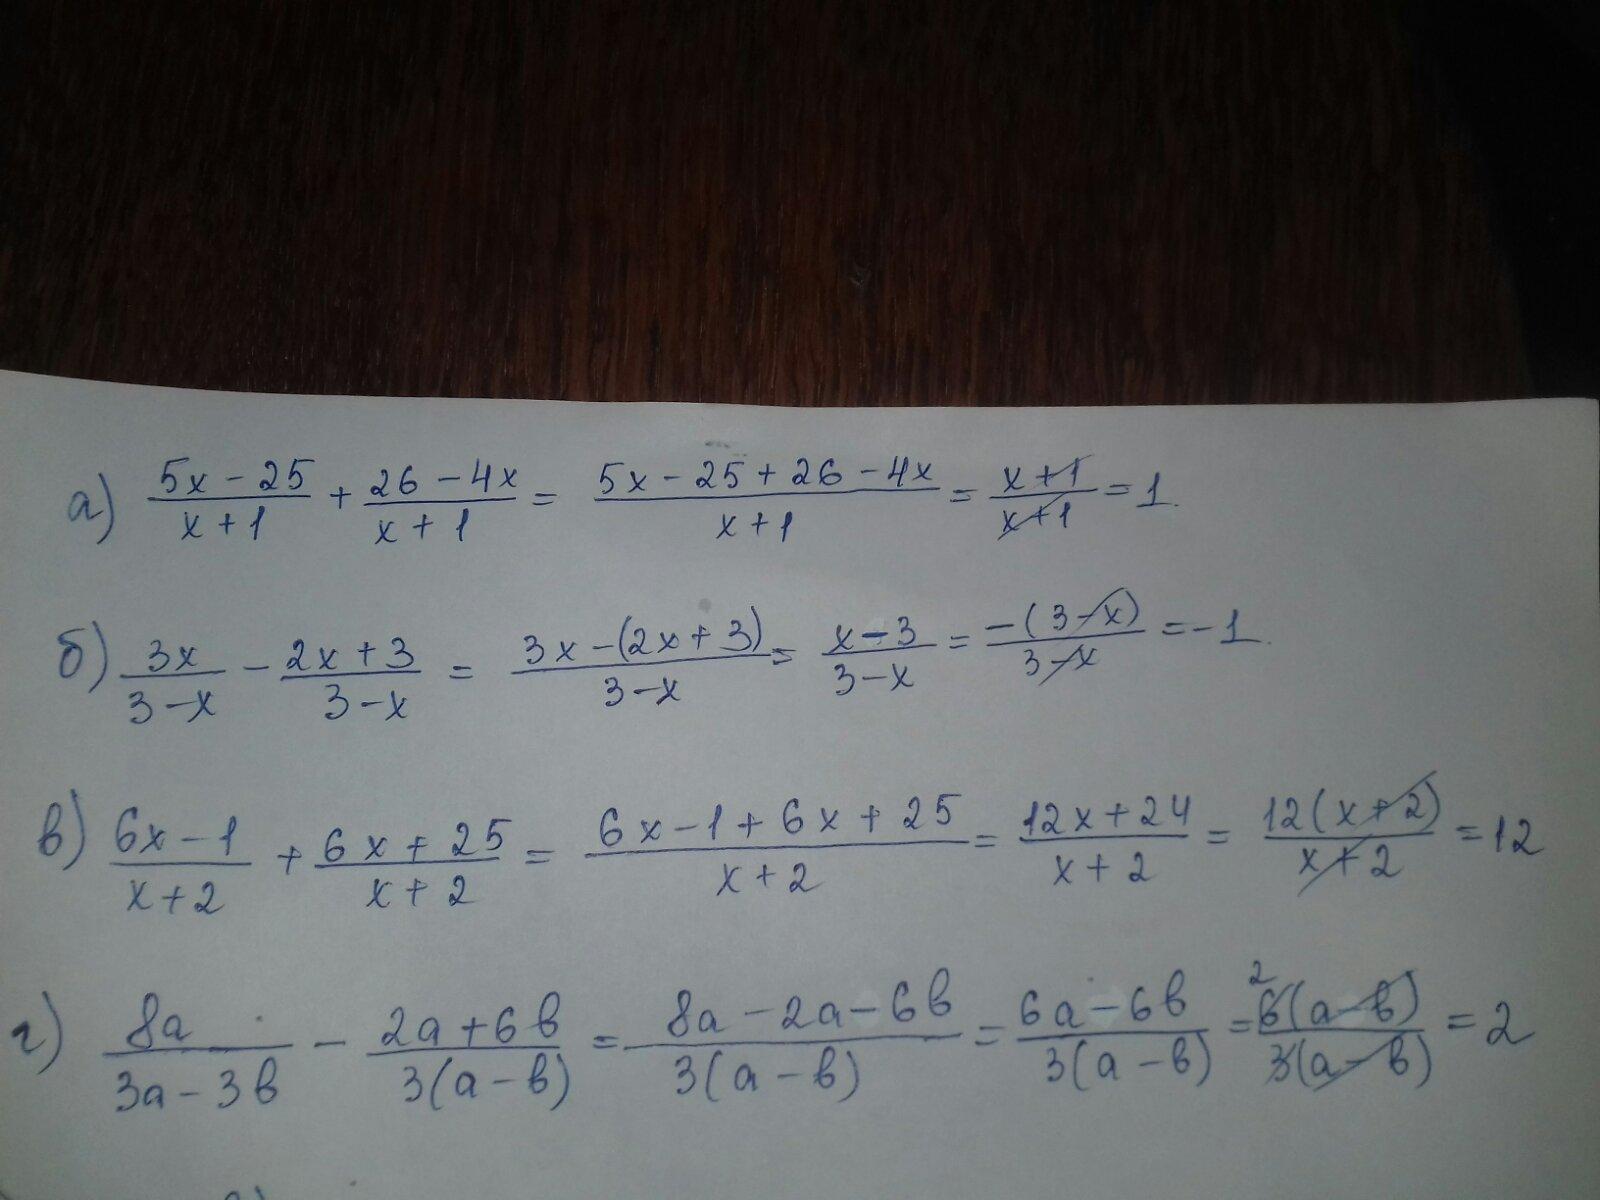 а) (5x - 25)/(x + 1) + (26 - 4x)/(x + 1) = (5x - 25 + 26 - 4x)/(x + 1) = (x + 1)/(x + 1) = 1.
б) 3x/(3 - x) - (2x + 3)/(3 - x) = (3x - (2x + 3))/(3 - x) = (x - 3)/(3 - x) = -(3 - x)/(3 - x) = -1.
в) (6x - 1)/(x + 2) + (6x + 25)/(x + 2) = (6x - 1 + 6x + 25)/(x + 2) = (12x + 24)/(x + 2) = 12(x + 2)/(x + 2) = 12
г) 8a/(3a - 3в) - (2a + 6в)/(3(a - в)) = (8a - 2a - 6в)/(3(a - в)) = (6a - 6в)/(3(a - в)) = ²6(a - в)/(3(a - в)) = 2